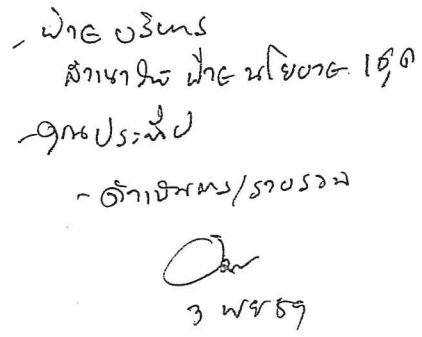 - ฝ่ายบริหาร
สำเนาให้ ฝ่ายนโยบาย 1 ชุด
- คุณประทีป
- ดำเนินการ/รวบรวม
3 พย 59